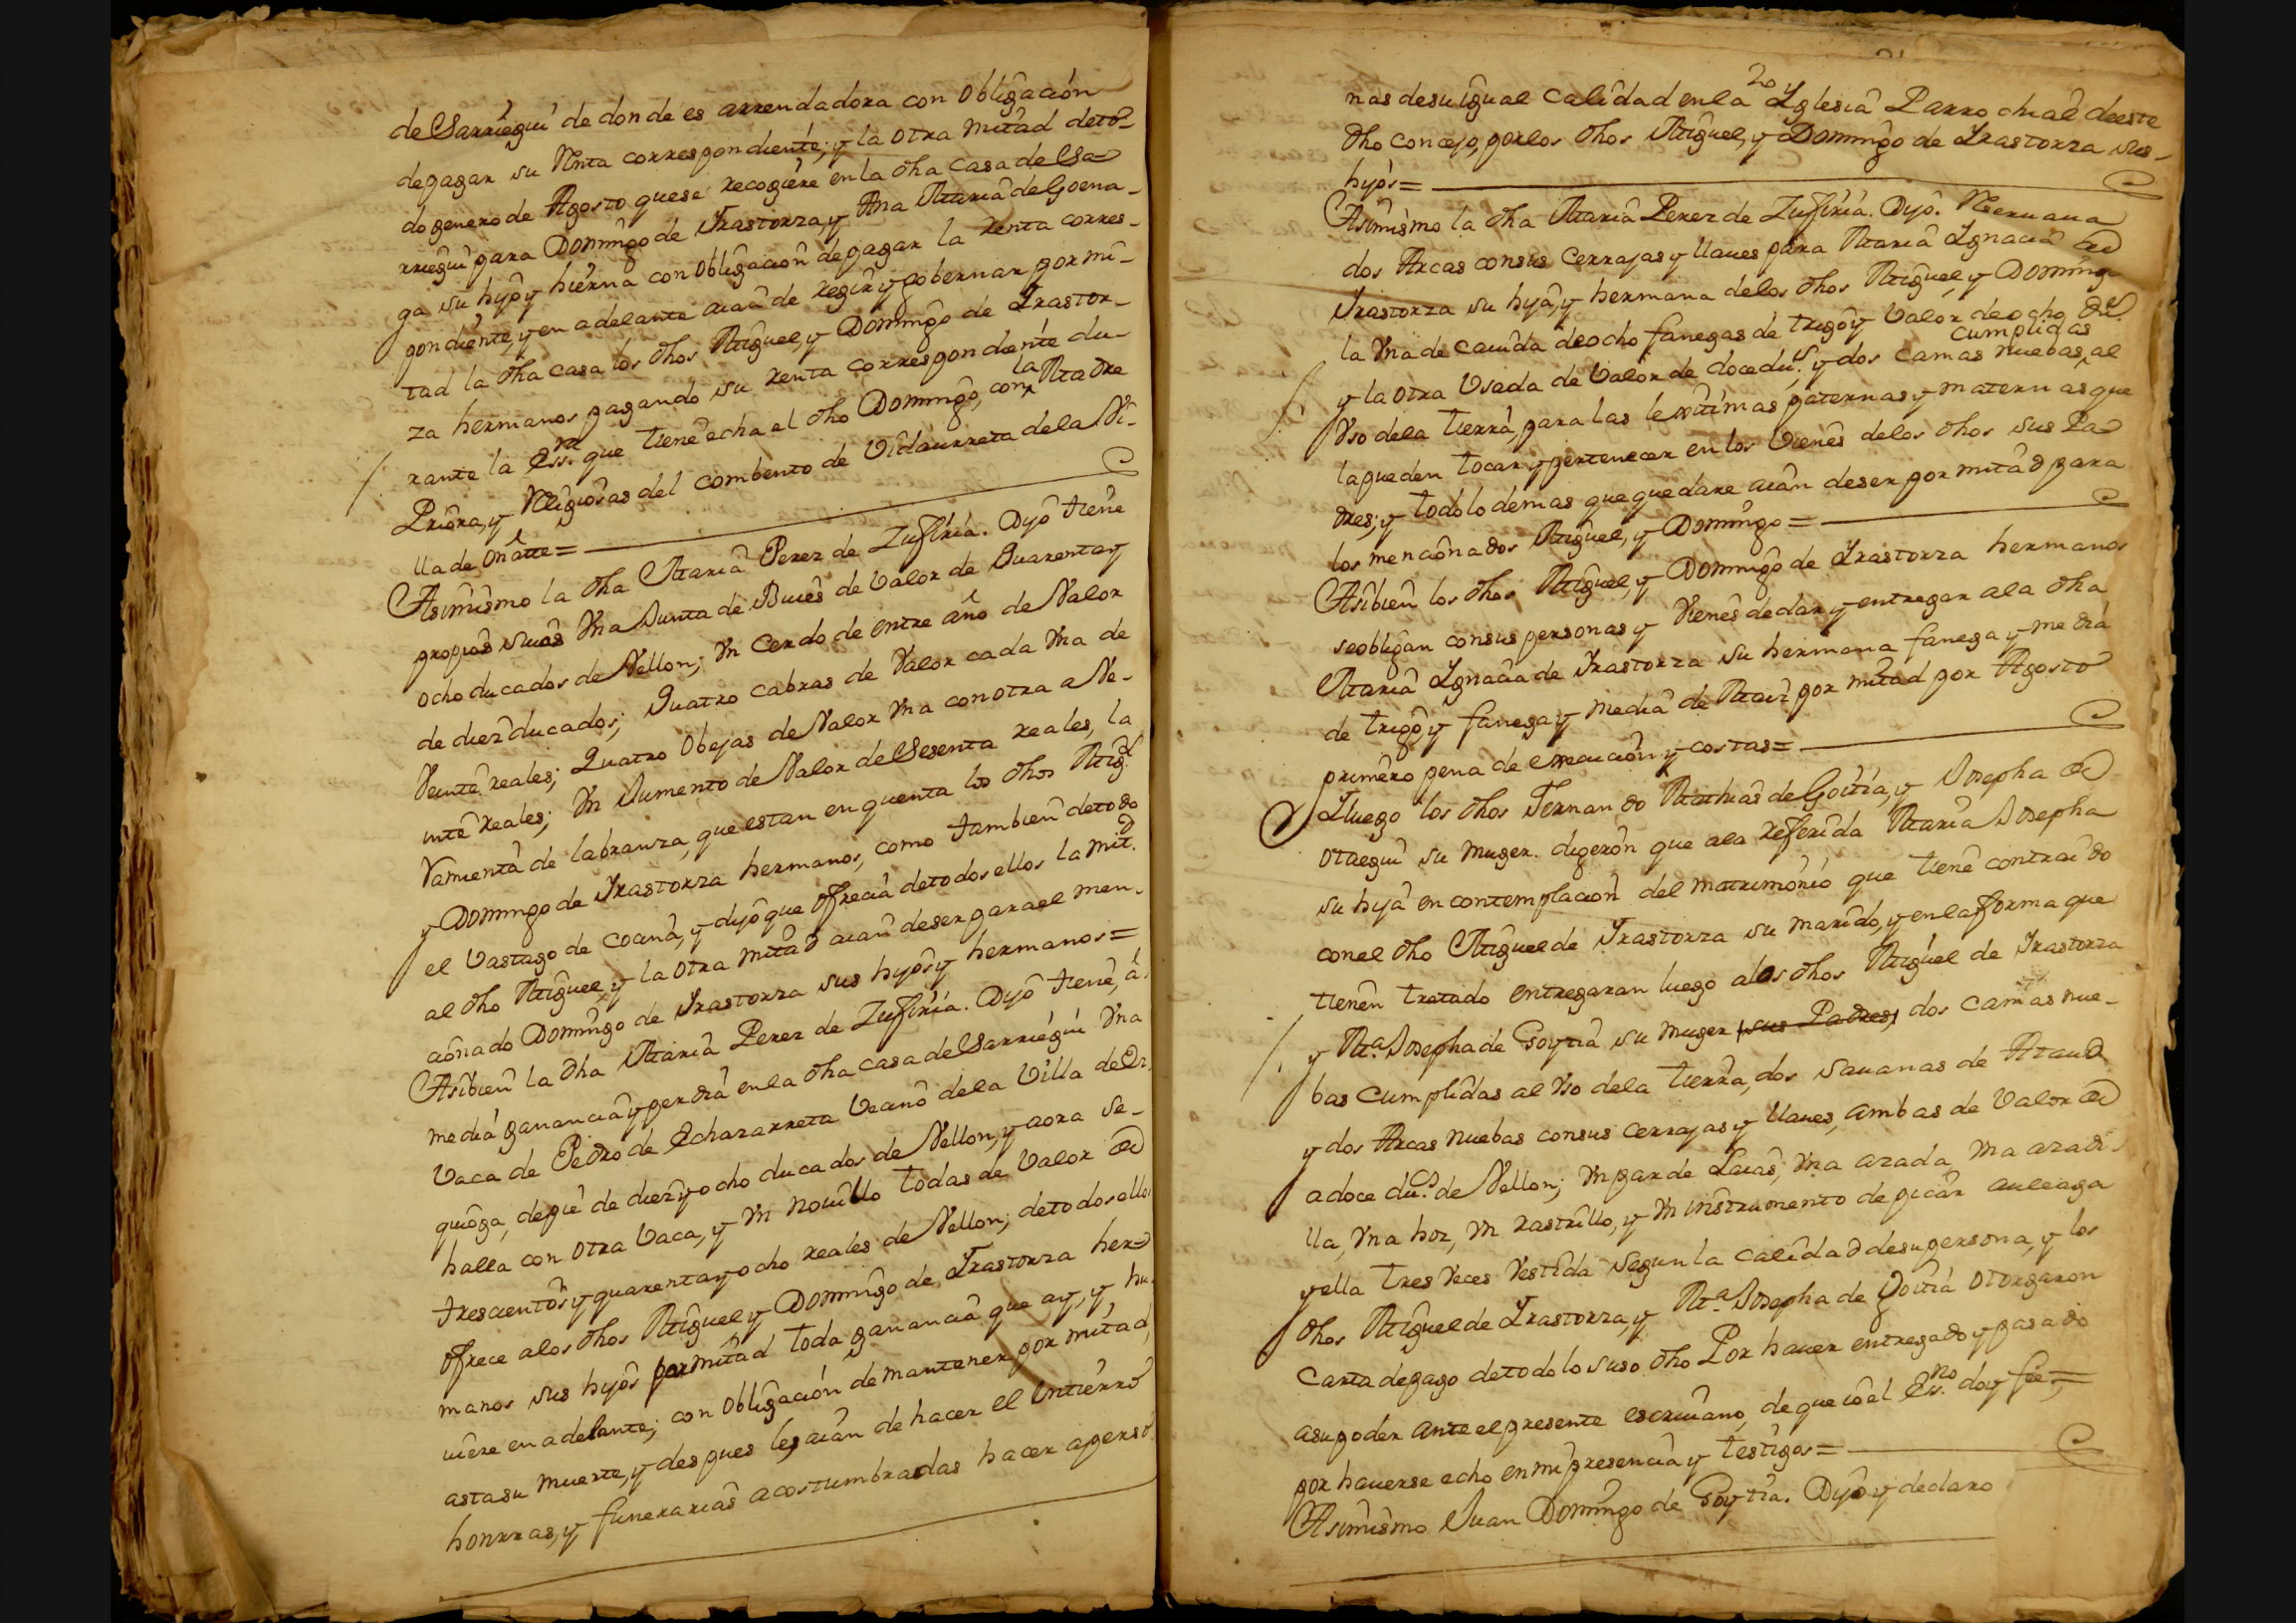 de Sarriegui de donde es arrendadora con Obligaciôn
de pagar su Renta correspondiente; y la otra mitad de to-
do genero de Agosto que se recogiere en la dha casa de Sa-
rriegui para Domingo de Irastorza, y Ana Maria de Goena-
ga su hijo y hierna con Obligaciôn de pagar la renta corres-
pondiente, y en adelante aian de regir y gobernar por mi-
tad la dha casa los dhos Miguel, y Domingo de Irastor-
za hermanos pagando su renta correspondiente du-
rante la Ess.ra que tiene echa el dho Domingo, con la Madre
Priôra, y Religiosas del combento de Vidaurreta de la Vi-
lla de Oñatte=
Asimismo la dha Maria Perez de Zufiria. Dijo tiene
propios suios Vna Junta de Bueis de Valor de Quarenta y
ocho ducados de Vellon; Vn Cerdo de entre año de Valor
de diez ducados; Quatro cabras de Valor cada Vna de
Veinte reales; Quatro Obejas de Valor Vna con otra a Ve-
inte reales; Vn Jumento de Valor de Sesenta reales, la
Vamienta de labranza, que estan en quenta los dhos Mig.l
y Domingo de Irastorza hermanos, como tambien de todo
el Vastago de cocina, y dijo que ofrecia de todos ellos la mit.d
al dho Miguel, y la otra mitad aian de ser para el men-
cionado Domingo de Irastorza sus hijos y hermanos=
Asibien la dha Maria Perez de Zufiria. Dijo tiene, á
media ganancia y perdia en la dha casa de Sarriegui Vna
Vaca de Pedro de Echazarreta Vecino de la Villa de Ur-
quioga, de pie de diez y ocho ducados de Vellon, y aora se-
halla con otra Vaca, y Vn novillo todas de Valor de
trescientos y quarenta y ocho reales de Vellon; de todos ellos
ofrece a los dhos Miguel y Domingo de Irastorza her-
manos sus hijos por mitad toda ganancia que ay, y hu-
uiere en adelante; con Obligaciôn de mantener por mitad,
asta su muerte, y despues les aian de hacer el Entierro
honrras, y funerarias acostumbradas hacer a perso-
20
nas de su igual calidad en la Yglesia Parrochial de este
dho concejo, por los dhos Miguel, y Domingo de Irastorza sus-
hijos=
Asimismo la dha Maria Perez de Zufiria. Dijo. Reseruaua
dos Arcas con sus Cerrajas y llaues para Maria Ignacia de
Irastorza su hija, y hermana de los dhos Miguel, y Domingo
la Vna de cauida de ocho fanegas de trigo y Valor de ocho du.s
y la otra Vsada de Valor de doce du.s, y dos camas nuebas, cumplidas al
Vso de la tierra, para las lexitimas paternas y maternas que
la pueden tocar y pertenecer en los Vienes de los dhos sus Pa-
dres; y todo lo demas que quedare aian de ser por mitad para
los mencionados Miguel, y Domingo=
Asibien los dhos Miguel, y Domingo de Irastorza hermanos
se obligan con sus personas y Vienes de dar y entregar a la dha
Maria Ignacia de Irastorza su hermana fanega y media
de trigo y fanega y media de Maiz por mitad por Agosto
primero pena de execuciôn y costas=
Y luego los dhos Fernando Mathias de Goitia, y Josepha de
Otaegui su muger. digeron que a la referida Maria Josepha
su hija en contemplaciôn del matrimonio que tiene contraido
con el dho Miguel de Irastorza su marido, y en la forma que
tienen tratado entregaran luego a los dhos Miguel de Irastorza
y M.a Josepha de Goytia su muger, sus Padres, dos camas nue-
bas Cumplidas al Vso de la tierra, dos sauanas de Ataud
y dos Arcas nuebas con sus cerrajas y llaues, ambas de Valor de
a doce du.s de Vellon; Vn par de Laias, Vna azada, Vna azadi-
lla, Vna hoz, Vn rastrillo, y Vn instrumento de picar auleaga
y ella tres Veces Vestida segun la calidad de su persona, y los
dhos Miguel de Irastorza, y M.a Josepha de Goitia otorgaron
Carta de pago de todo lo suso dho Por hauer entregado y pasado
a su poder ante el presente escriuano, de que io el Ess.no doy fee=
por hauerse echo en mi presencia y testigos=
Asimismo Juan Domingo de Goytia. Dijo y declaro